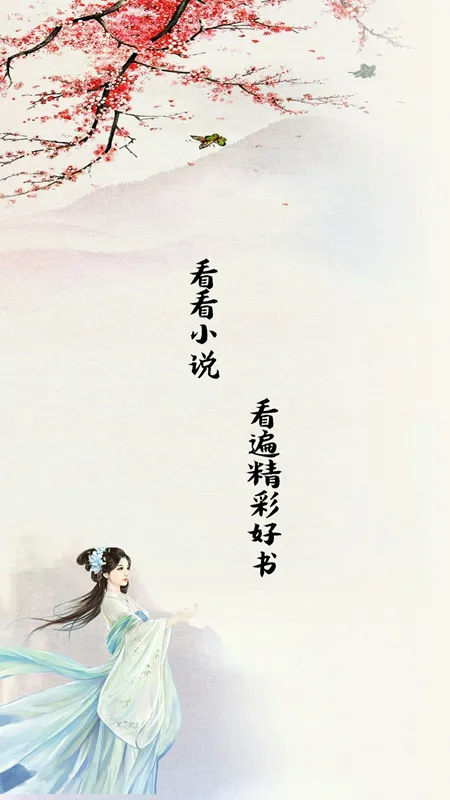 看看小说
看遍精彩好书